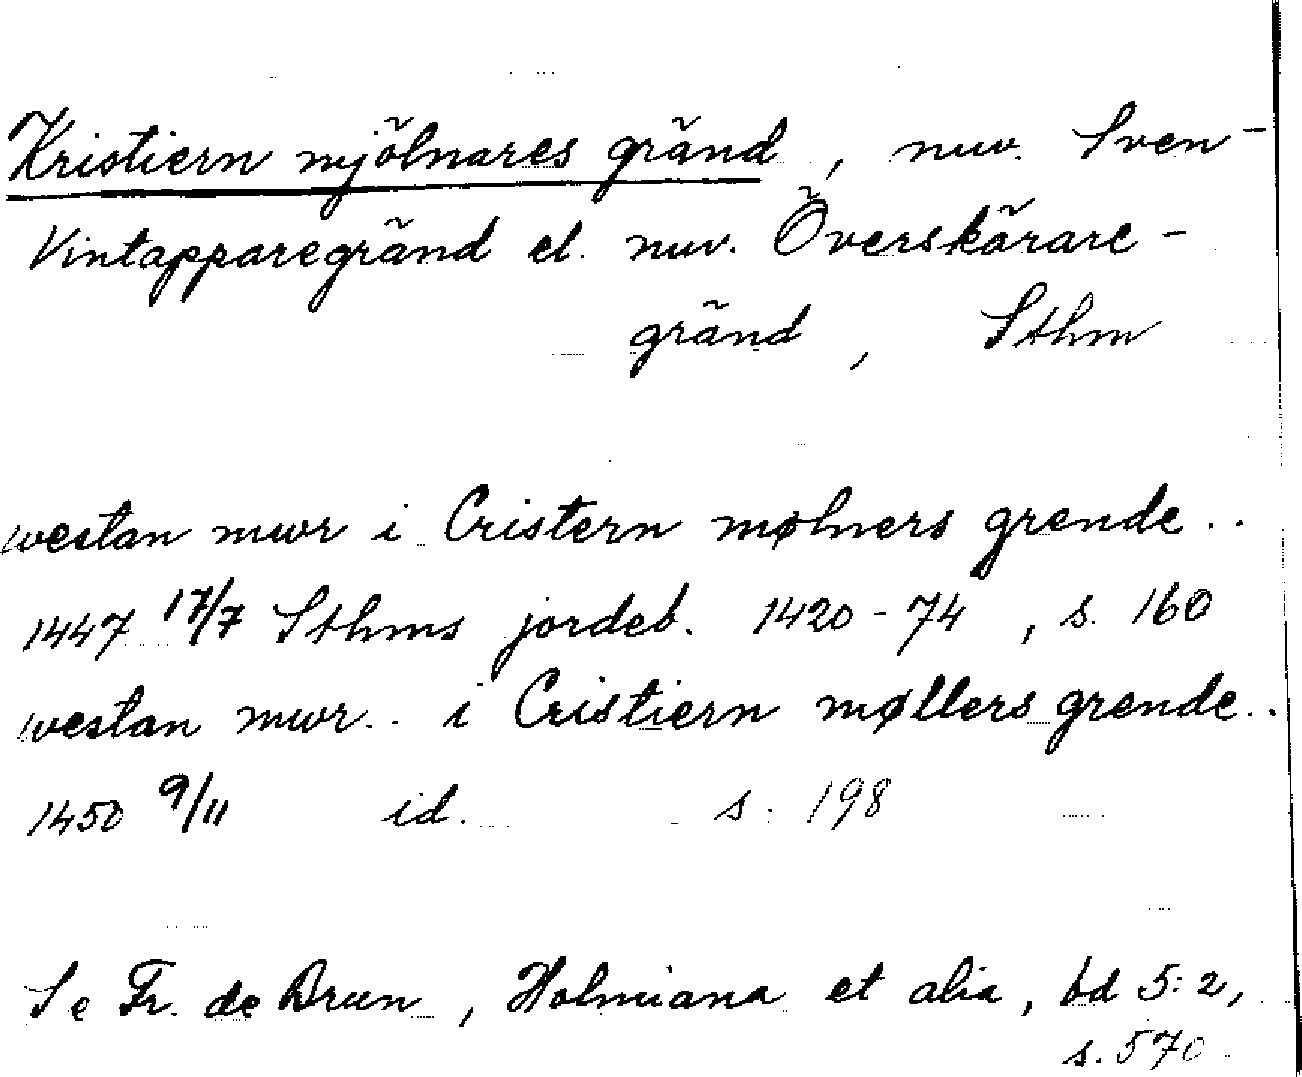 Kristiern mjölnares gränd, nuv. Sven-
Vintapparegränd el. nuv. Överskärare-
gränd, Sthm
westan mwr i Cristern mølners grende..
1447 17/7 Sthms jordeb. 1420-74, s. 160
westan mwr.. i Cristiern møllers grende..
1450 9/11 id. s. 198
Se Fr. de Brun, Holmiana et alia, bd 5:2,
s. 570.